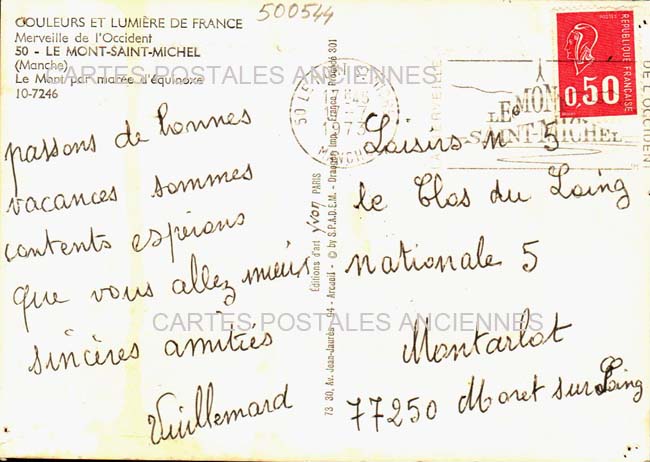 500544
COULEURS ET LUMIÈRE DE FRANCE
Merveille de l'Occident
50 - LE MONT-SAINT-MICHEL
(Manche)
Le Mont par marée d'équinoxe
10-7246
CARTES POSTALES ANCIENNES
passons de bonnes
vacances sommes
contents espérons
que vous allez mieux
sincères amitiés
Vuillemard
Éditions d'art yvon PARIS
73 30, Av. Jean-Jaurès - 94 - Arcueil - © by S.P.A.D.E.M. - Draeger Imp. - France - Progrès 301
50 LE MONT
MANCHE
LA MERVEILLE
LE MONT
SAINT-MICHEL
DE L'OCCIDENT
POSTES
RÉPUBLIQUE FRANÇAISE
0,50
Loisirs n 5
le Clos du Loing
nationale 5
Montarlot
77250 Moret sur Loing
CARTES POSTALES ANCIENNES